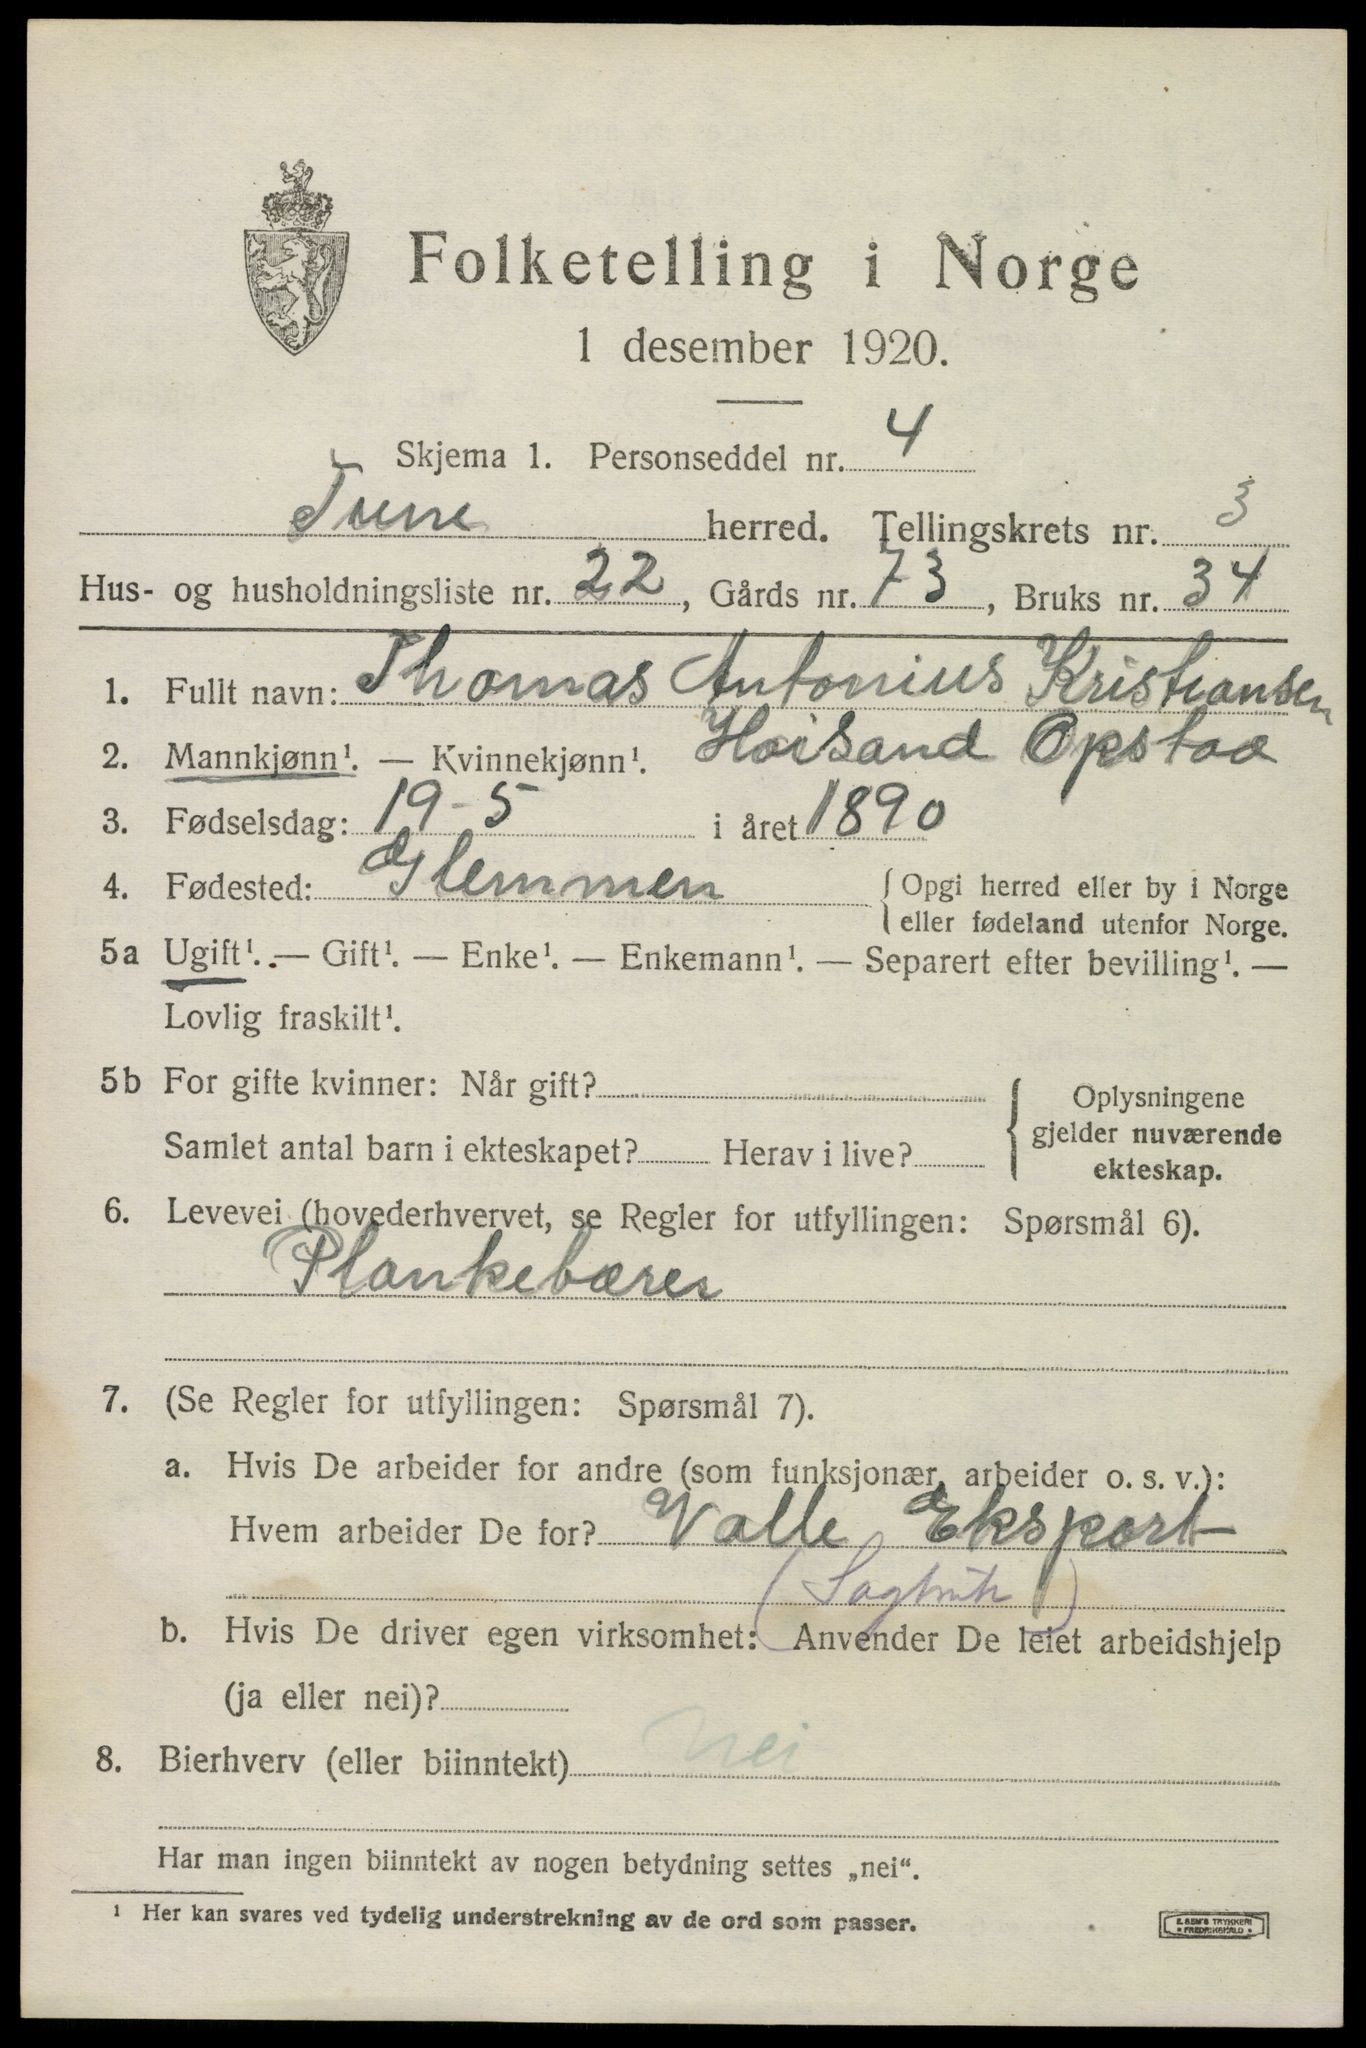 Folketelling i Norge
1 desember 1920.
Skjema 1. Personseddel nr. 4
Tune herred. Tellingskrets nr. 3
Hus- og husholdningsliste nr. 22, Gårds nr. 73, Bruks nr. 34
1. Fullt navn: Thomas Antonius Kristiansen
2. Mannkjønn¹. — Kvinnekjønn¹. Höisand Opstad
3. Fødselsdag: 19-5 i året 1890
4. Fødested: Glemmen { Opgi herred eller by i Norge
eller fødeland utenfor Norge.
5a Ugift¹. — Gift¹. — Enke¹. — Enkemann¹. — Separert efter bevilling¹. —
Lovlig fraskilt¹.
5b For gifte kvinner: Når gift?
Samlet antal barn i ekteskapet? Herav i live?
{ Oplysningene
gjelder nuværende
ekteskap.
6. Levevei (hovederhvervet, se Regler for utfyllingen: Spørsmål 6).
Plankebærer
7. (Se Regler for utfyllingen: Spørsmål 7).
a. Hvis De arbeider for andre (som funksjonær, arbeider o. s. v.):
Hvem arbeider De for? Valle Eksport
(Sagbruk)
b. Hvis De driver egen virksomhet: Anvender De leiet arbeidshjelp
(ja eller nei)?
8. Bierhverv (eller biinntekt) Nei
Har man ingen biinntekt av nogen betydning settes „nei“.
¹ Her kan svares ved tydelig understrekning av de ord som passer.
E. SEM'S TRYKKERI
FREDRIKSHALD